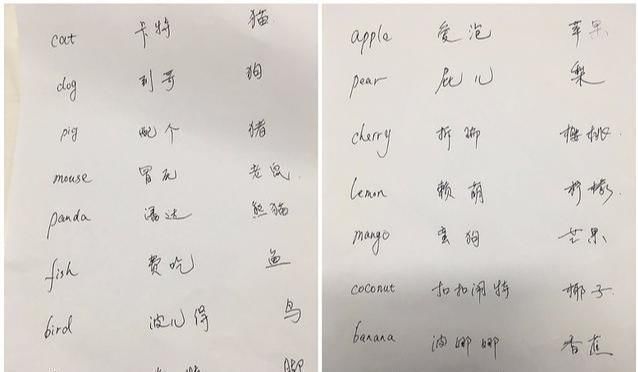 cat 卡特 猫
dog 到哥 狗
pig 配个 猪
mouse 冒死 老鼠
panda 潘达 熊猫
fish 费吃 鱼
bird 波儿得 鸟
脚
apple 爱泡 苹果
pear 屁儿 梨
cherry 拆瑞 樱桃
lemon 赖萌 柠檬
mango 蛮狗 芒果
coconut 扣扣闹特 椰子
banana 波娜娜 香蕉